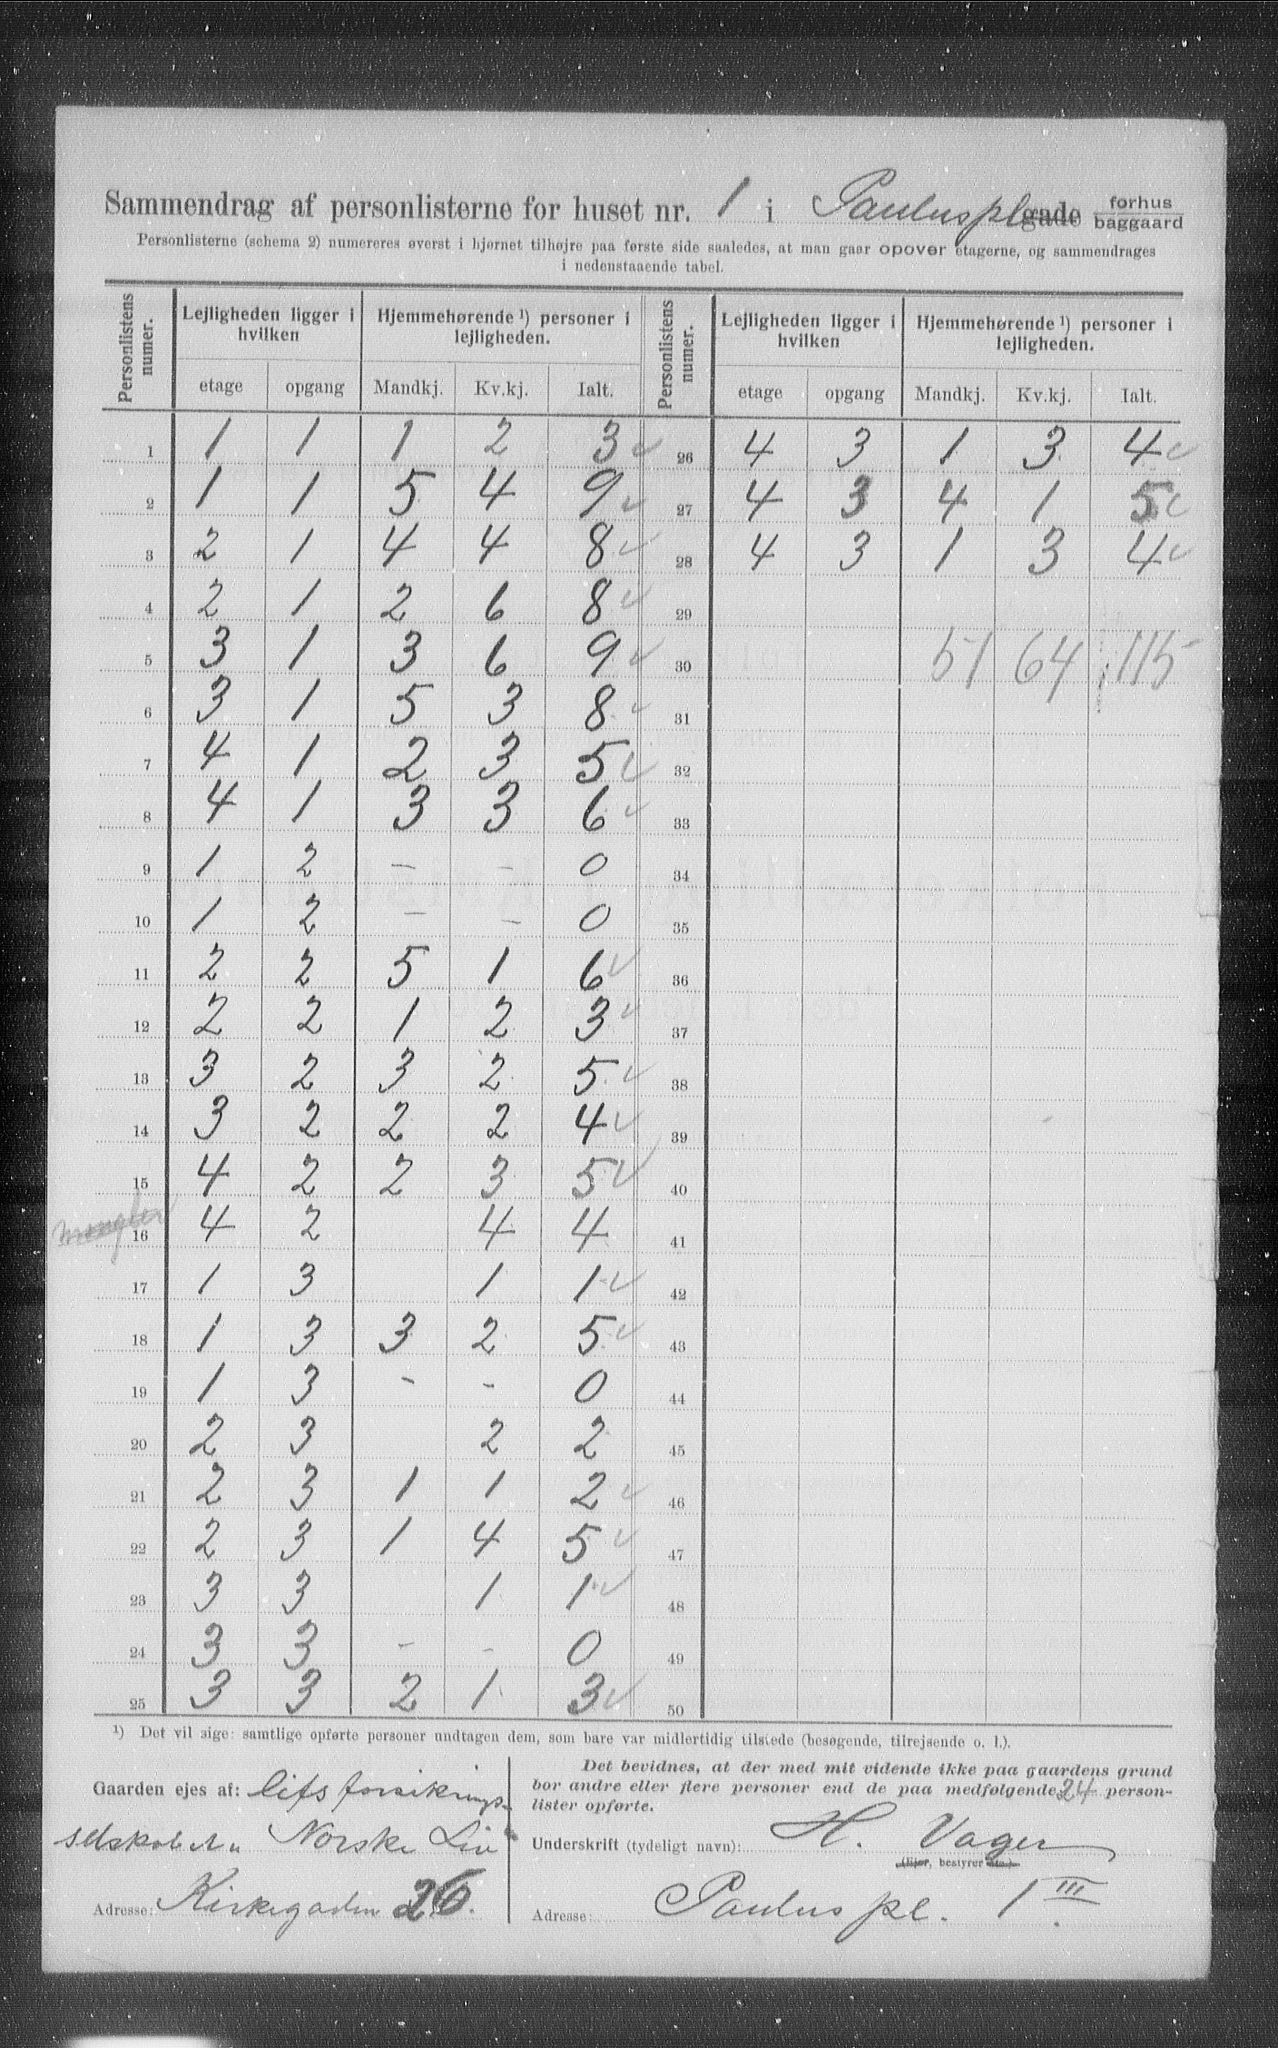 Sammendrag af personlisterne for huset nr. 1 i Pauluspl gade forhus baggaard
Personlisterne (schema 2) numereres øverst i hjørnet tilhøjre paa første side saaledes, at man gaar opover etagerne, og sammendrages
i nedenstaaende tabel.
Personlistens numer. Lejligheden ligger i hvilken Hjemmehørende ¹) personer i lejligheden. Personlistens numer. Lejligheden ligger i hvilken Hjemmehørende ¹) personer i lejligheden.
etage opgang Mandkj. Kv.kj. Ialt. etage opgang Mandkj. Kv.kj. Ialt.
1 1 1 1 2 3 ✓ 26 4 3 1 3 4 ✓
2 1 1 5 4 9 ✓ 27 4 3 4 1 5 ✓
3 2 1 4 4 8 ✓ 28 4 3 1 3 4 ✓
4 2 1 2 6 8 ✓ 29
5 3 1 3 6 9 ✓ 30 51 64 115
6 3 1 5 3 8 ✓ 31
7 4 1 2 3 5 ✓ 32
8 4 1 3 3 6 ✓ 33
9 1 2 - - 0 34
10 1 2 - - 0 35
11 2 2 5 1 6 ✓ 36
12 2 2 1 2 3 ✓ 37
13 3 2 3 2 5 ✓ 38
14 3 2 2 2 4 ✓ 39
15 4 2 2 3 5 ✓ 40
mangler 16 4 2 4 4 41
17 1 3 1 1 ✓ 42
18 1 3 3 2 5 ✓ 43
19 1 3 - - 0 44
20 2 3 2 2 45
21 2 3 1 1 2 ✓ 46
22 2 3 1 4 5 ✓ 47
23 3 3 1 1 ✓ 48
24 3 3 - - 0 49
25 3 3 2 1 3 ✓ 50
¹) Det vil sige: samtlige opførte personer undtagen dem, som bare var midlertidig tilstede (besøgende, tilrejsende o. l.).
Gaarden ejes af: Lifsforsikrings-
selskabet Norske Liv
Adresse: Kirkegaden 26.
Det bevidnes, at der med mit vidende ikke paa gaardens grund
bor andre eller flere personer end de paa medfølgende 24 person-
lister opførte.
Underskrift (tydeligt navn): H. Vager
(Ejer, bestyrer etc.)
Adresse: Paulus pl. 1 III